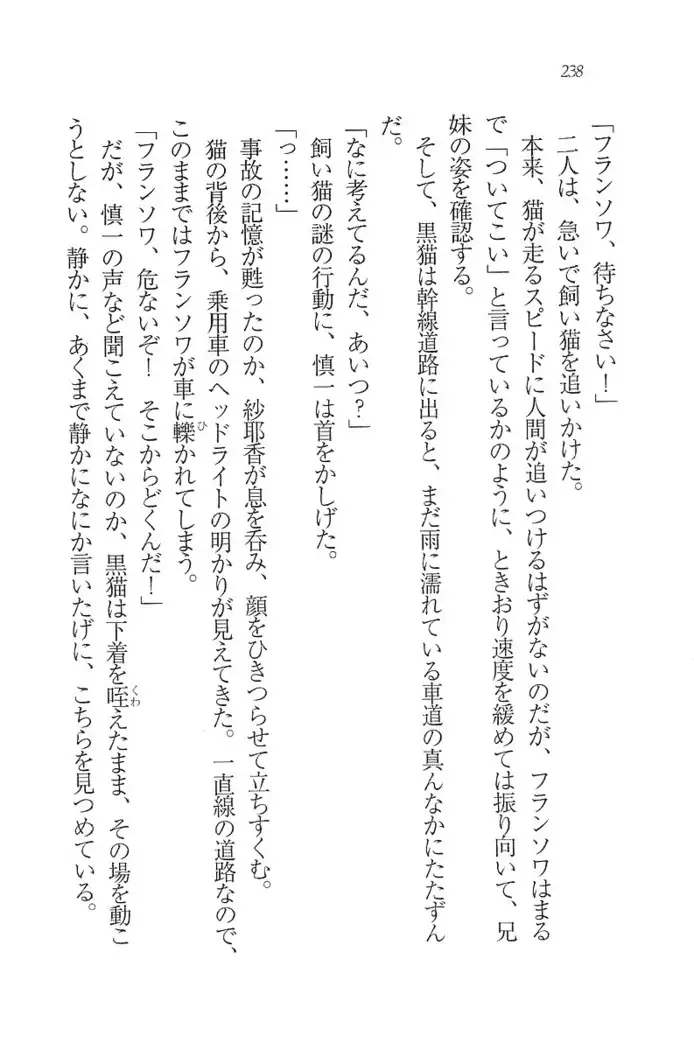 238
「フランソワ、待ちなさい！」
二人は、急いで飼い猫を追いかけた。
本来、猫が走るスピードに人間が追いつけるはずがないのだが、フランソワはまる
で「ついてこい」と言っているかのように、ときおり速度を緩めては振り向いて、兄
妹の姿を確認する。
そして、黒猫は幹線道路に出ると、まだ雨に濡れている車道の真んなかにたたずん
だ。
「なに考えてるんだ、あいつ？」
飼い猫の謎の行動に、慎一は首をかしげた。
「っ……」
事故の記憶が甦ったのか、紗耶香が息を呑み、顔をひきつらせて立ちすくむ。
猫の背後から、乗用車のヘッドライトの明かりが見えてきた。一直線の道路なので、
このままではフランソワが車に轢かれてしまう。
ひ
「フランソワ、危ないぞ！　そこからどくんだ！」
だが、慎一の声など聞こえていないのか、黒猫は下着を咥えたまま、その場を動こ
くわ
うとしない。静かに、あくまで静かになにか言いたげに、こちらを見つめている。